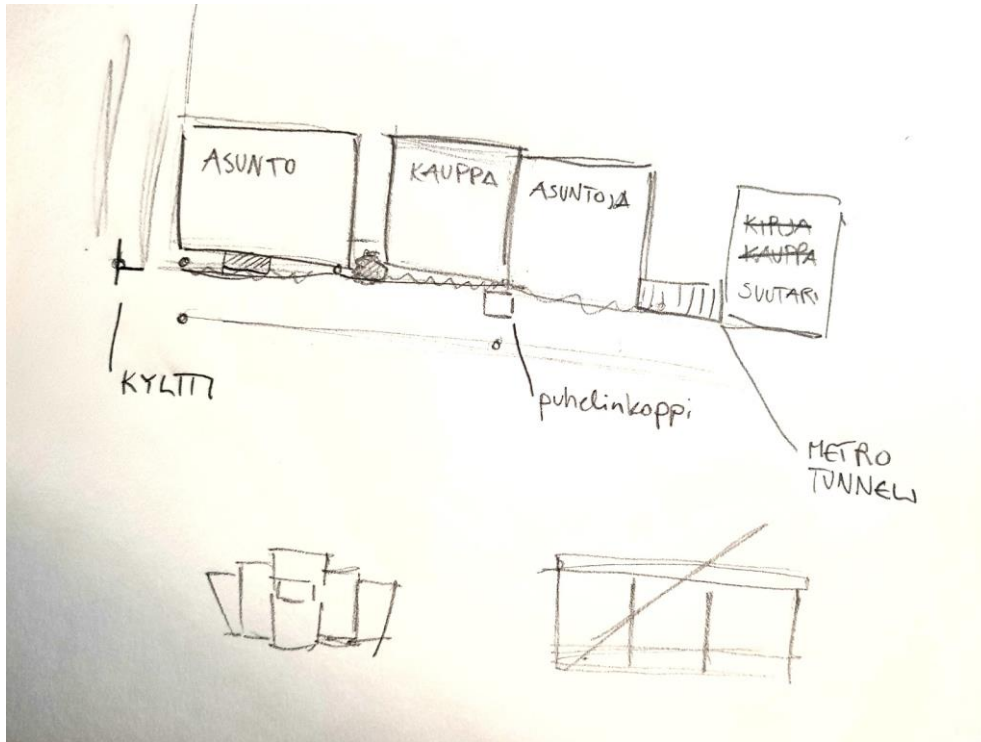 ASUNTO
KAUPPA
ASUNTOJA
KIRJA
KAUPPA
SUUTARI
KYLTTI
puhelinkoppi
METRO
TUNNELI